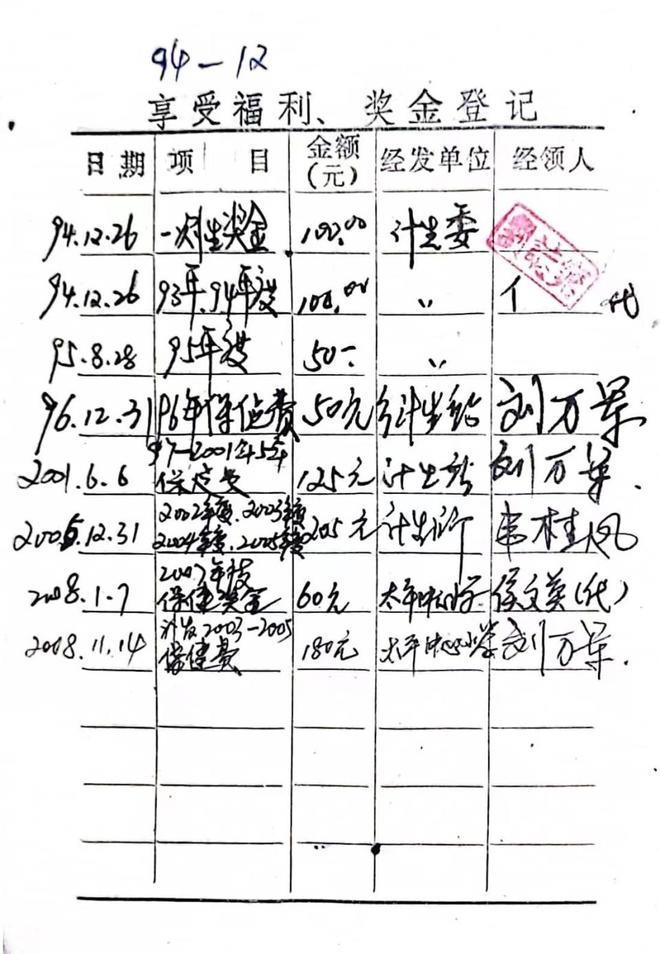 94-12
享受福利、奖金登记
日期 项目 金额(元) 经发单位 经领人
94.12.26 一次性奖金 100.00 计生委
94.12.26 93年.94年度 100.00 〃 代
95.8.28 95年度 50- 〃
96.12.31 96年保健费 50元 计生站 刘万军
97-2001年5年
2001.6.6 保健费 125元 计生站 刘万军.
2002年度.2003年度
2005.12.31 2004年度.2005年度 205元 计生所 桂凤
2007年度
2008.1.7 保健奖金 60元 太平中心小学 侯文英(代)
补发2003-2005
2008.11.14 保健费 180元 太平中心小学 刘万军.